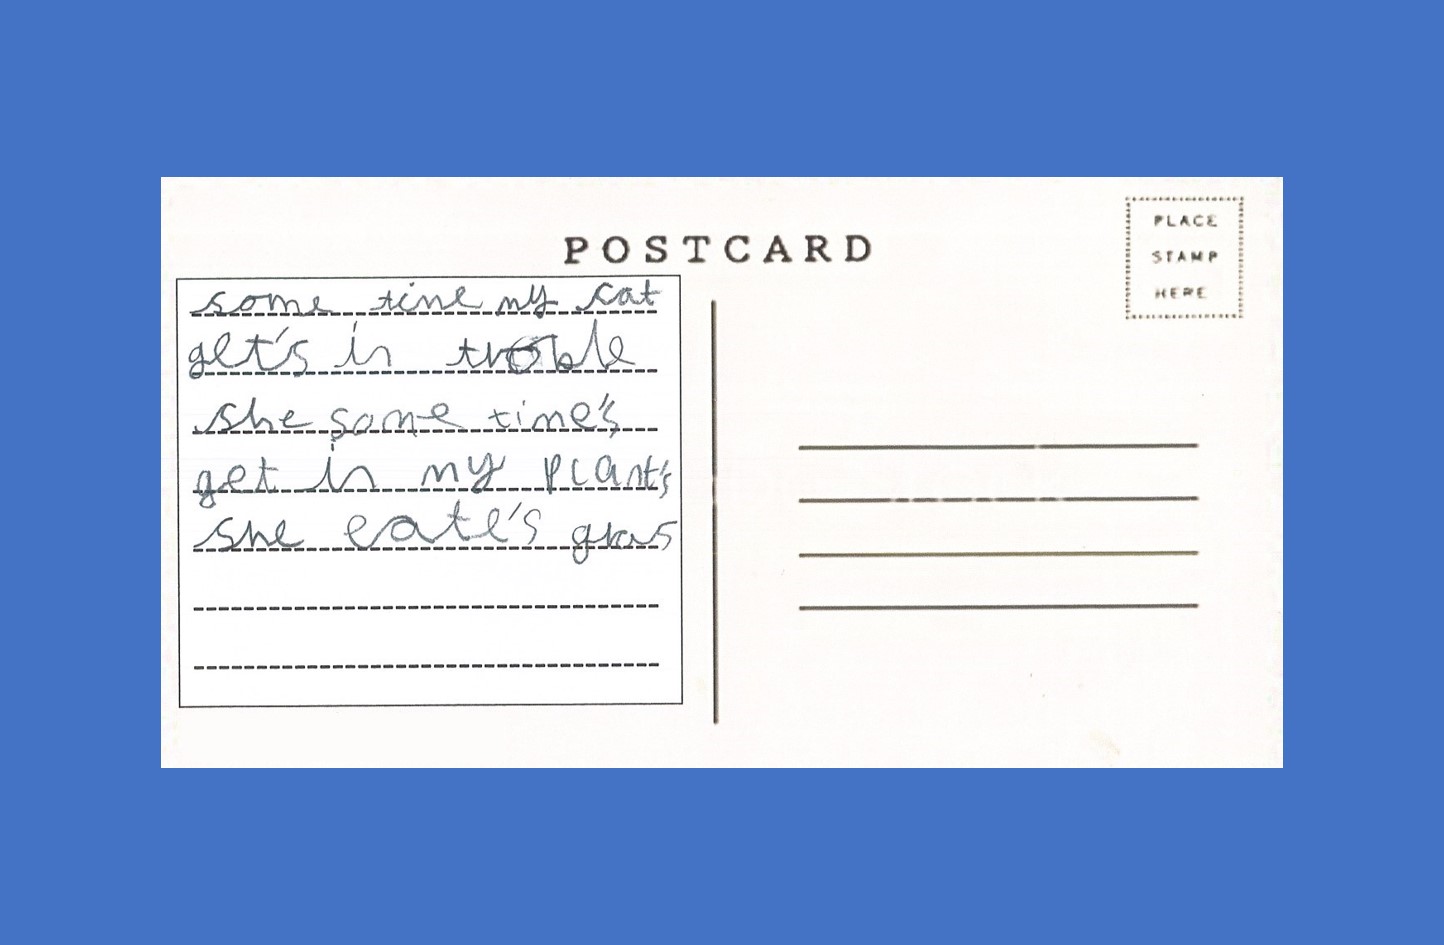 POSTCARD
PLACE
STAMP
HERE
some time my cat
get's in troble
she some time's
get in my plant's
she eate's gras